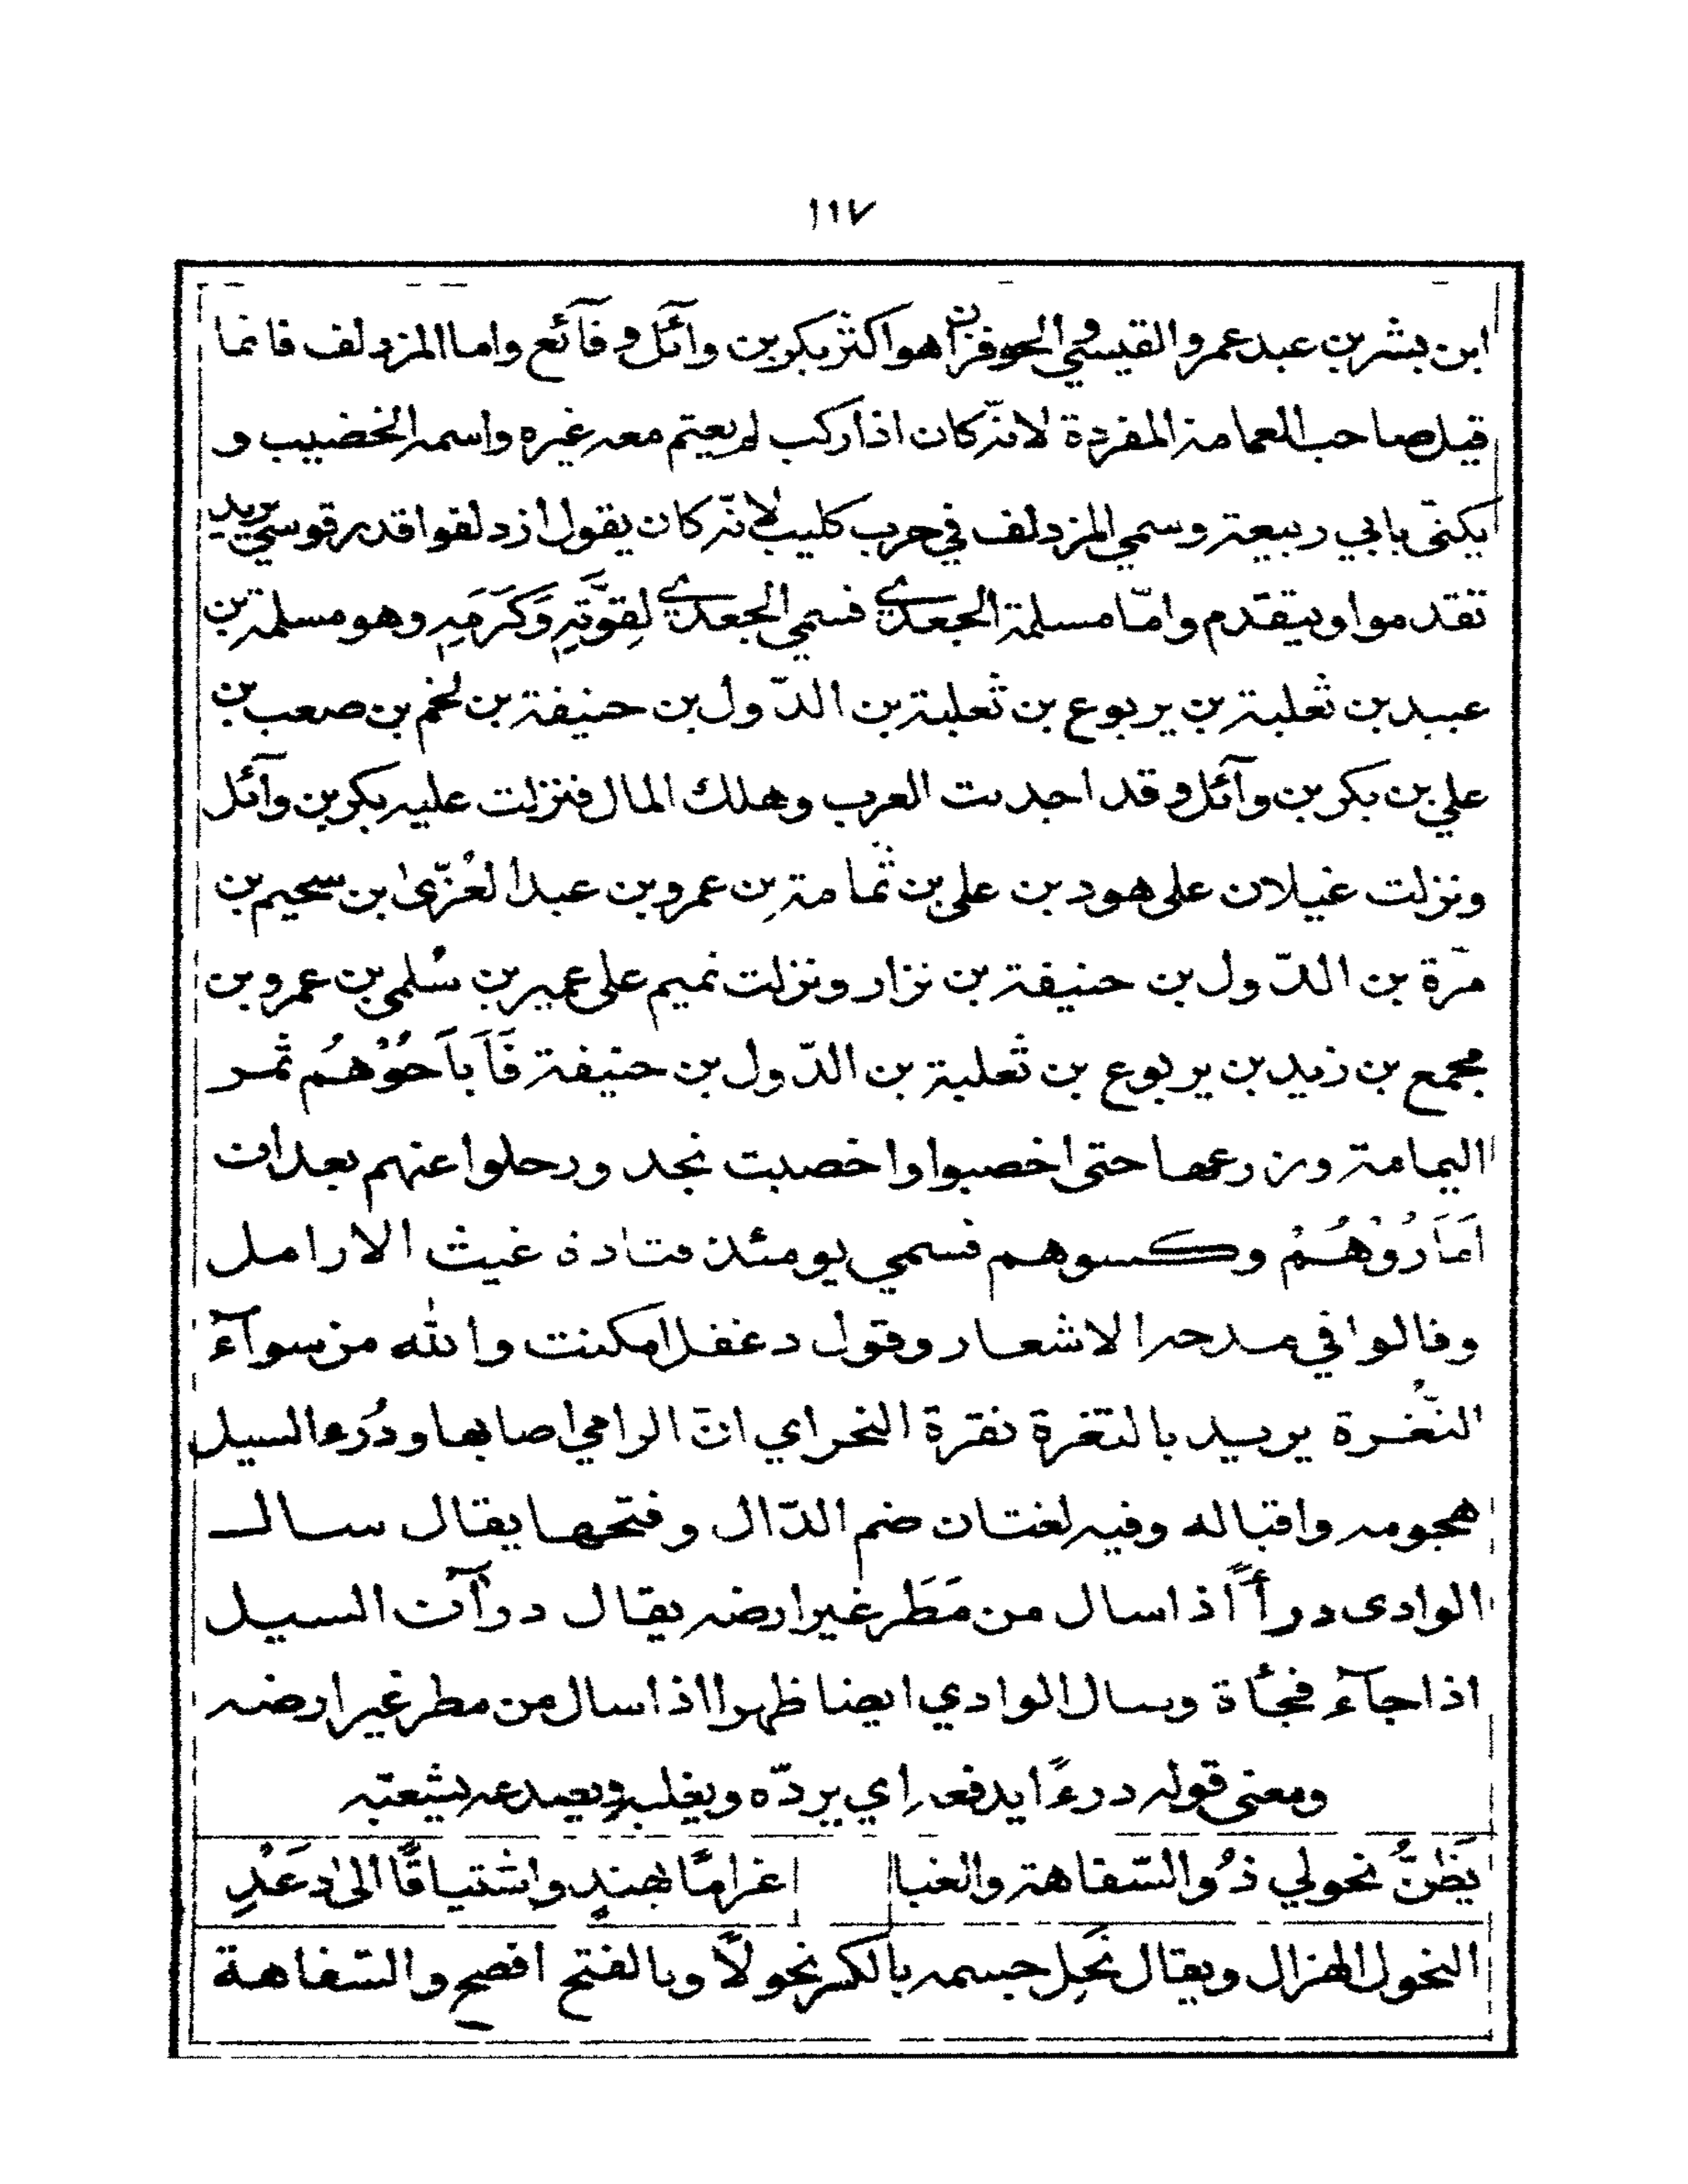 ١١٧
ابن بشر بن عبد عمرو القيسي والحوفزان هو اكثر بكر بن وآئل وقآئع واما المزدلف فانما
قيل صاحب العمامة المفردة لانّه كان اذا ركب لم يعتم معه غيره واسمه الخضيب و
يكنّى بابي ربيعة وسمي المزدلف في حرب كليب لانّه كان يقول ازدلفوا قدر قوسي يريد
تقدموا ويتقدم وامّا مسلمة الجعدي فسمي الجعدي لِقوَّتِهِ وَكَرَمَهِ وهو مسلمة بن
عبيد بن ثعلبة بن يربوع بن ثعلبة بن الدّول بن حنيفة بن لخم بن صعب بن
علي بن بكر بن وآئل وقد اجدبت العرب وهلك المال فنزلت عليه بكر بن وآئل
ونزلت غيلان على هود بن علي بن ثمامة بن عمرو بن عبد العُزّى بن سحيم بن
مرّة بن الدّول بن حنيفة بن نزار ونزلت تميم على عمير بن سُلمي بن عمرو بن
مجمع بن زيد بن يربوع بن ثعلبة بن الدّول بن حنيفة فَاَبَاَحُوْهُم ثمر
اليمامة وزرعها حتى اخصبوا واخصبت نجد ورحلوا عنهم بعد ان
اَمَارُوْهُمْ وكسوهم فسمي يومئذ قتادة غيث الارامل
وقالوا في مدحه الاشعار وقول دغفل امكنت والله من سوآء
الثّغرة يريد بالثغرة نقرة النحر اي انّ الرامي اصابها ودُرء السيل
هجومه واقباله وفيه لغتان ضم الدّال وفتحها يقال سال
الوادى درأً اذا سال من مَطَر غير ارضه يقال درآت السيل
اذا جآء فجأة وسال الوادي ايضا ظهرا اذا سال من مطر غير ارضه
ومعنى قوله درءًا يدفعه اي يردّه ويغلبه ويصدعه بشيعته
يَظُنُّ نحولي ذُو السّفاهة والغبا غرامًا بهندٍ واشتياقًا الى دَعْدِ
النحول الهزال ويقال نَحِل جسمه بالكسر نحولاً وبالفتح افصح والسّفاهة